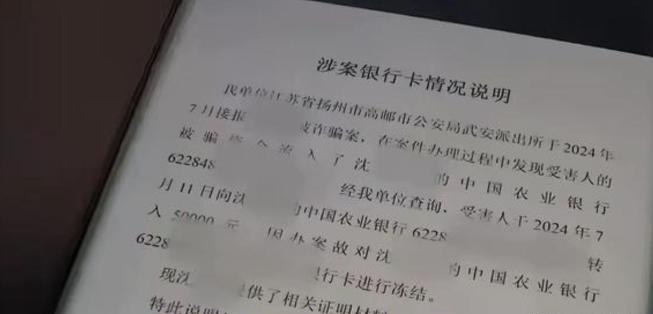 涉案银行卡情况说明
我单位江苏省扬州市高邮市公安局武安派出所于2024年
7月接报 被诈骗案，在案件办理过程中发现受害人的
被骗资金流入了沈 的中国农业银行
622848 经我单位查询，受害人于2024年7
月11日向沈 的中国农业银行6228 转
入50000元 因办案故对沈 的中国农业银行
6228 银行卡进行冻结。
现沈 提供了相关证明材料
特此说明